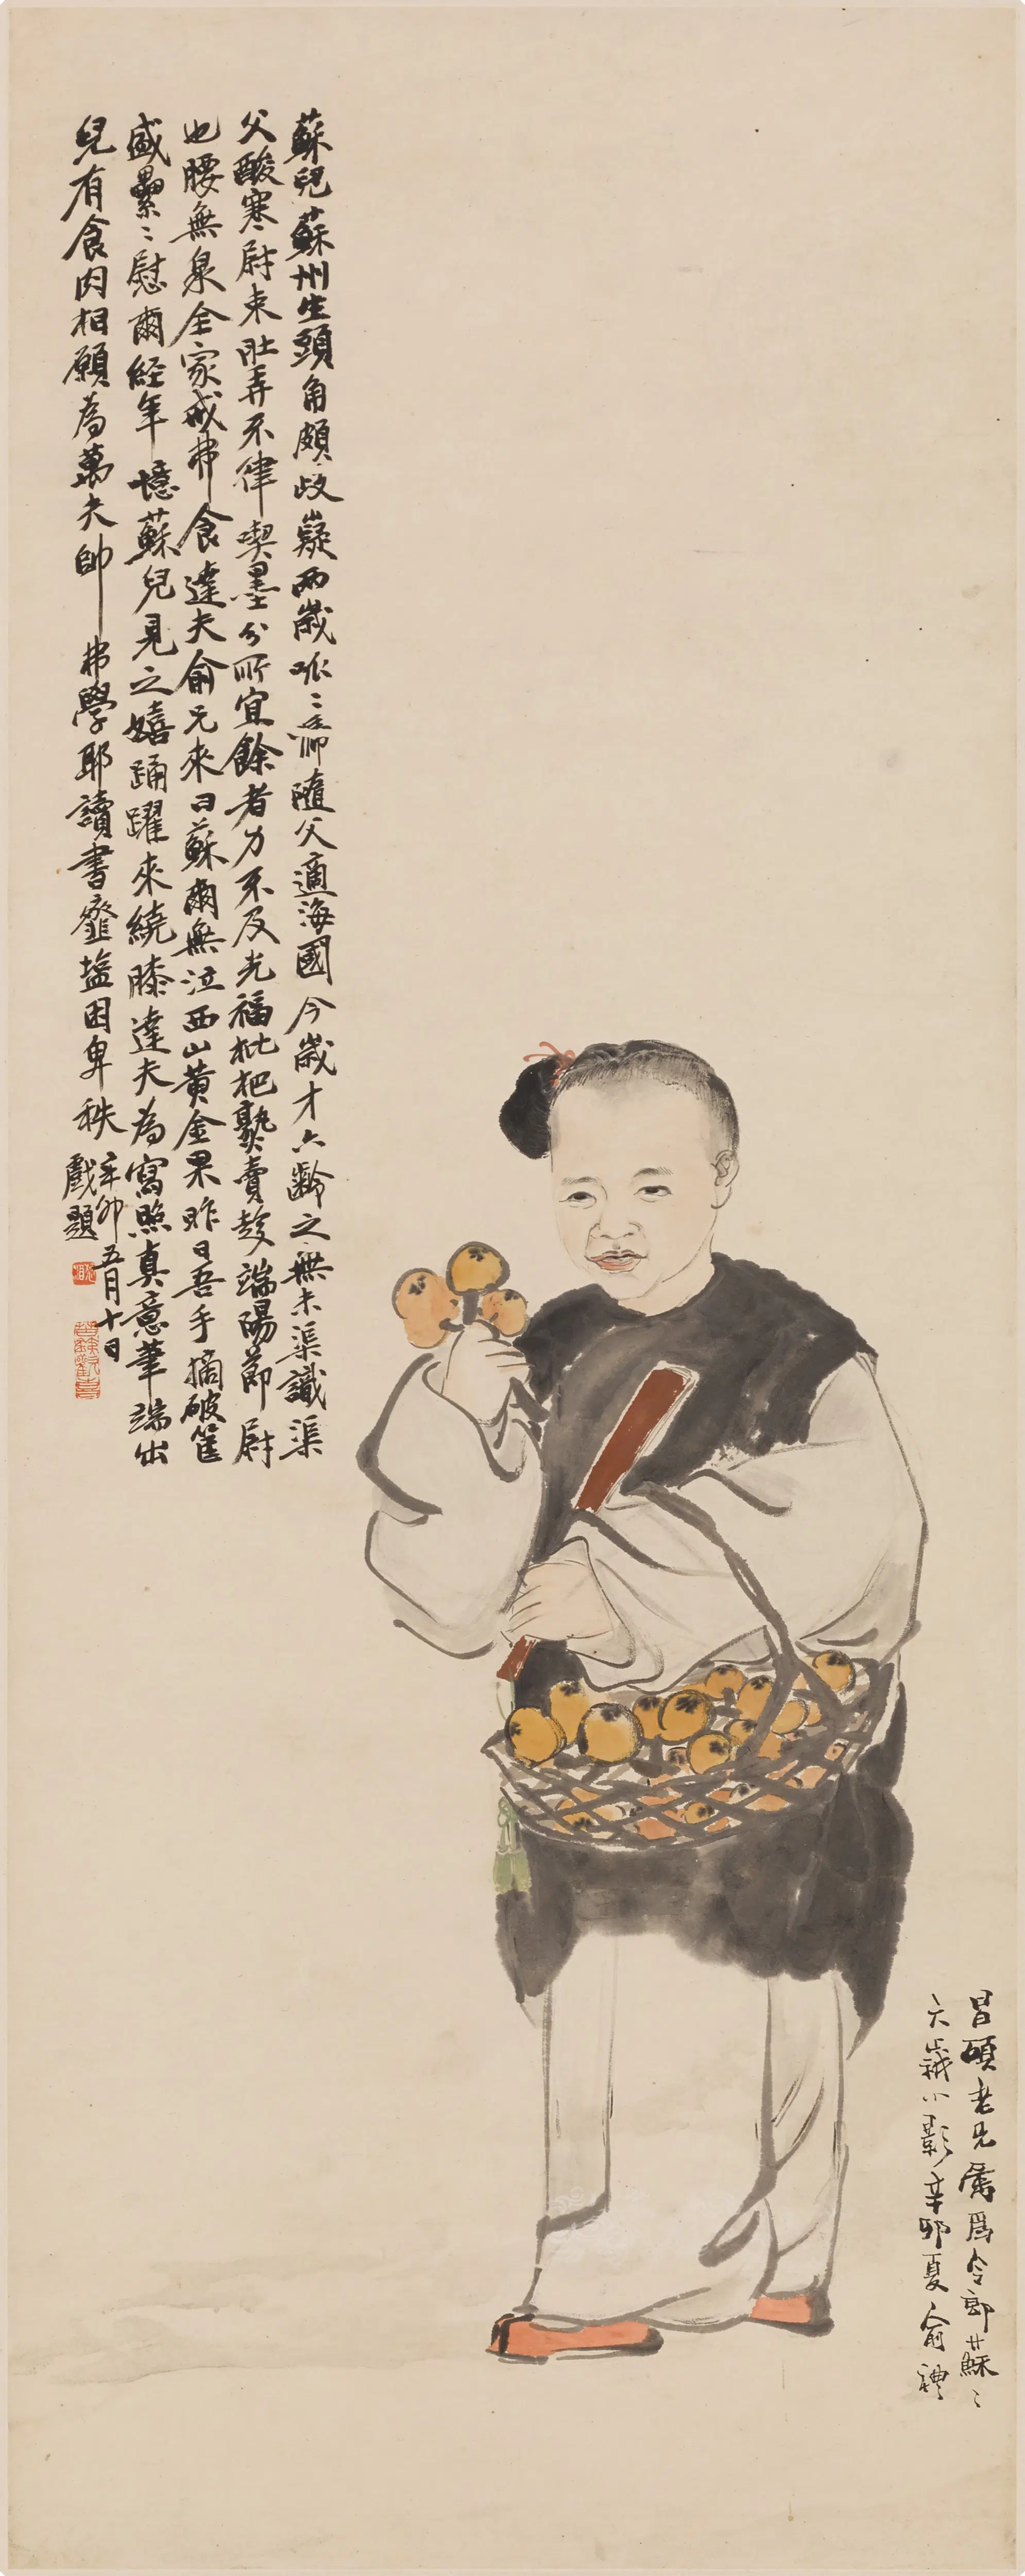 蘇兒蘇州生頭角頗岐嶷兩歲呱〻啼隨父適海國今歲才六齡之無未渠識渠
父酸寒尉束肚弄不律喫墨分所宜餘者力不及光福枇杷熟賣趁端陽節尉
也腰無泉全家戒弗食達夫俞元來曰蘇爾無泣西山黃金果昨日吾手摘破筐
盛纍〻慰爾經年憶蘇兒見之嬉踊躍來繞膝達夫為寫照真意筆端出
兒有食肉相願為萬夫帥弗學耶讀書虀鹽困卑秩
辛卯五月十日
戲題
昌碩老兄屬爲令郎蘇〻
六歲小影辛卯夏俞禮